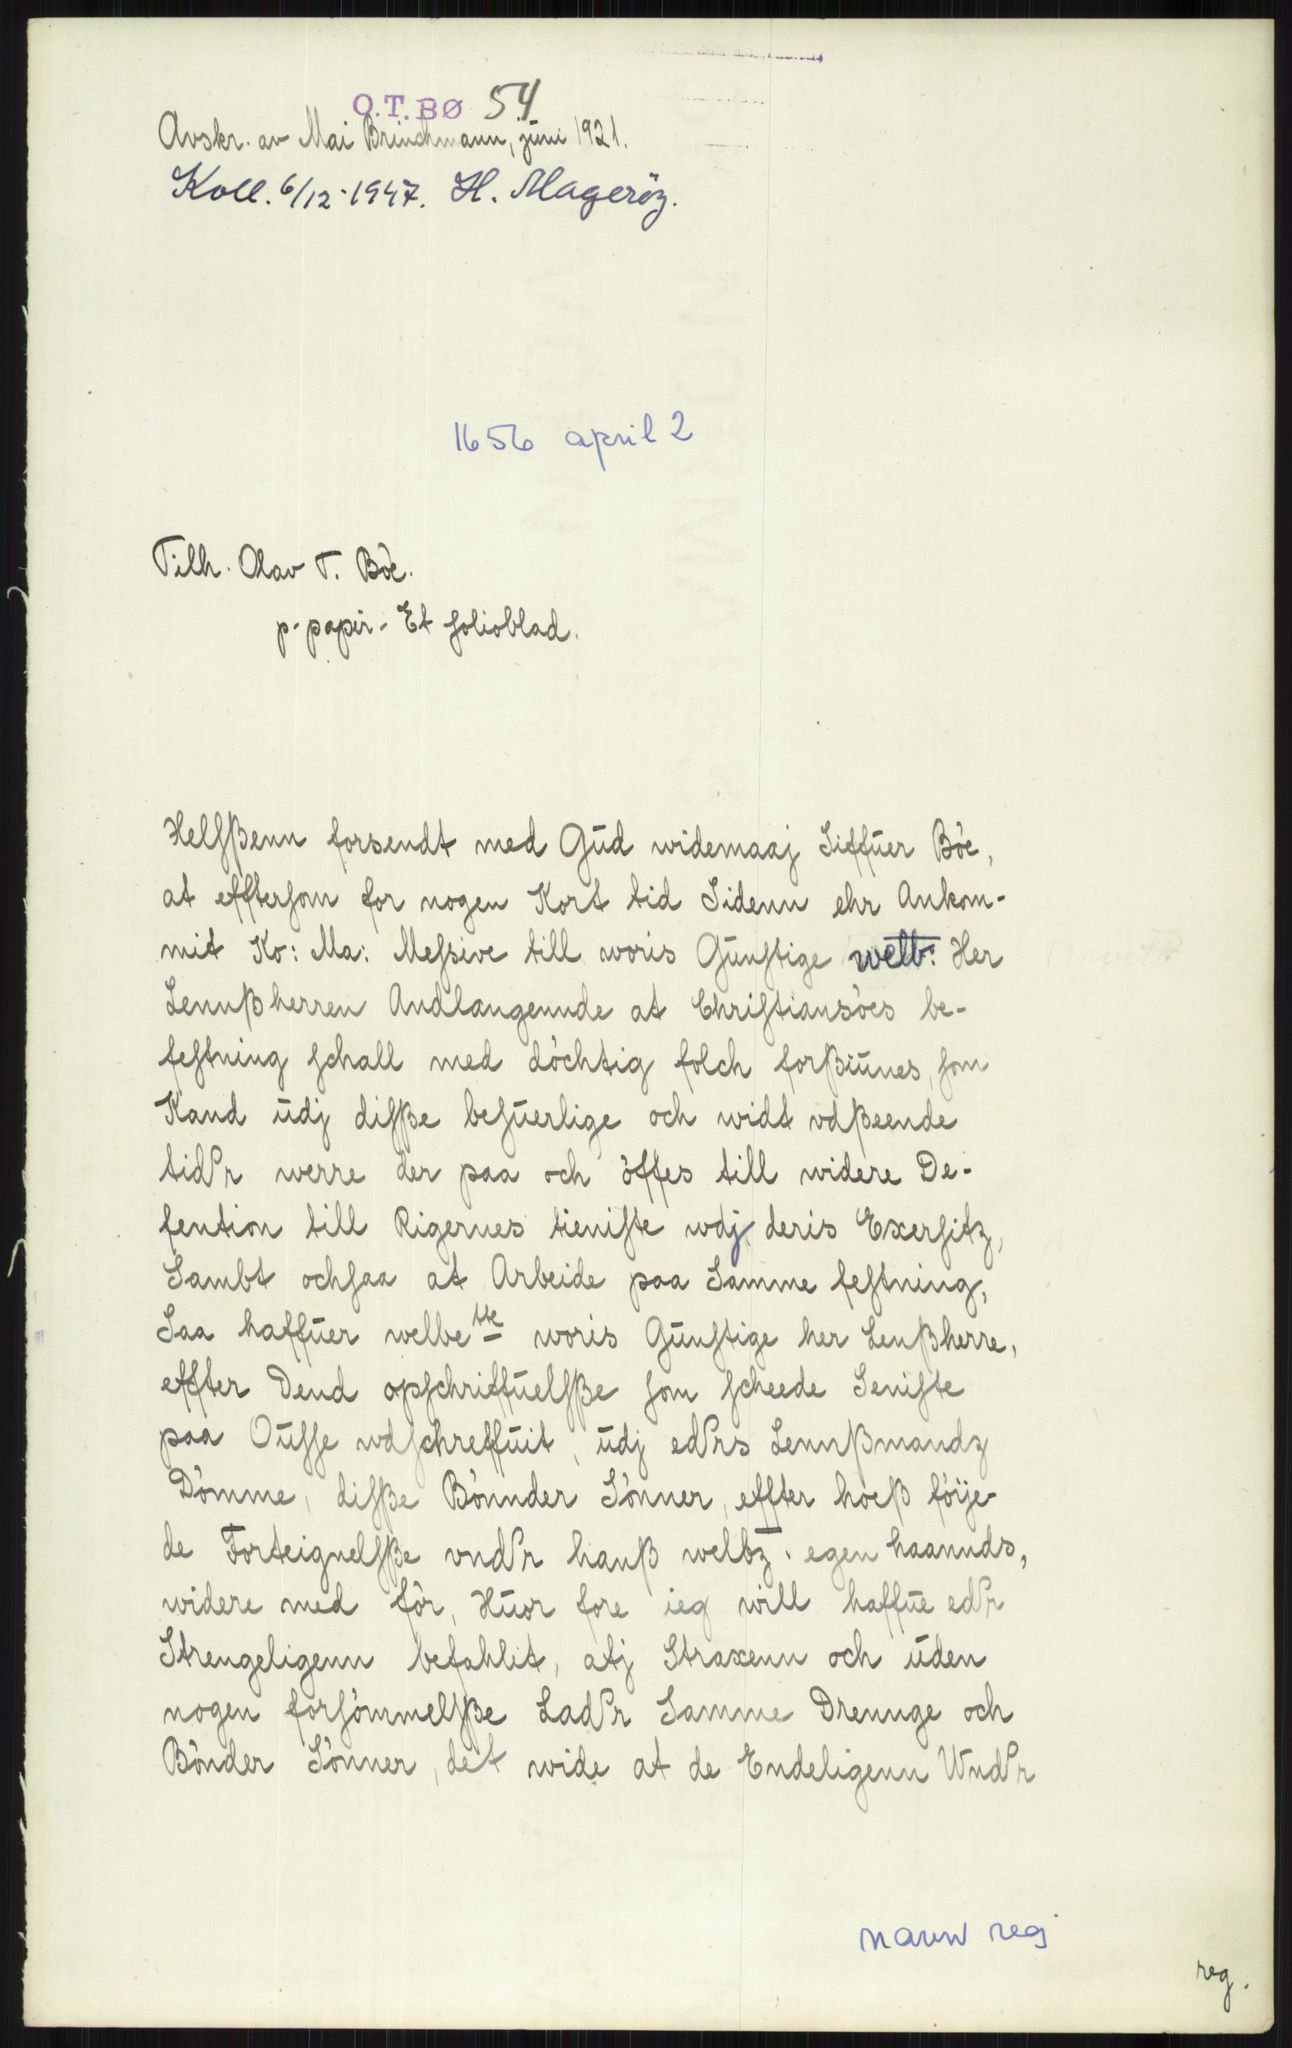 O.T.BØ 54
Avskr. av Mai Brinchmann, juni 1921.
Koll. 6/12-1947. H. Mageröy.
1656 april 2
Tilh. Olav T. Böe.
p. papir. Et folioblad.
Helsßenn forsendt med Gud widemaaj Siffuer Böe,
at efftersom for nogen Kort tid Sidenn ehr Ankom-
mit Ko: Ma: Messive till woris Gunstige welb: Her
Lennßherren Andlangennde at Christiansöes be-
festning schall med döchtig folch forßiunes, som
Kand udj disße besuerlige och widt vdßeende
tider werre der paa och öffes till widere De-
fention till Rigernes tieniste wdj deris Exersitz,
Sambt ochsaa at Arbeide paa Samme festning,
Saa haffuer welbe tte woris Gunstige her Lenßherre,
effter Dend opschriffuelsße som scheede Seniste
paa Ousse wdschreffuit, udj eders Lennßmandz
Dömme, disße Bönnder Sönner, effter hoeß föije-
de Forteignelsße vnder hanß welbz. egen haannds,
widere med för, Huor fore ieg will haffue eder
Strengeligenn befahlit, atj Straxenn och uden
nogen forsömmelsße Lader Samme Drennge och
Bönder Sönner, det wide at de Endeligenn Under
navn reg
reg.